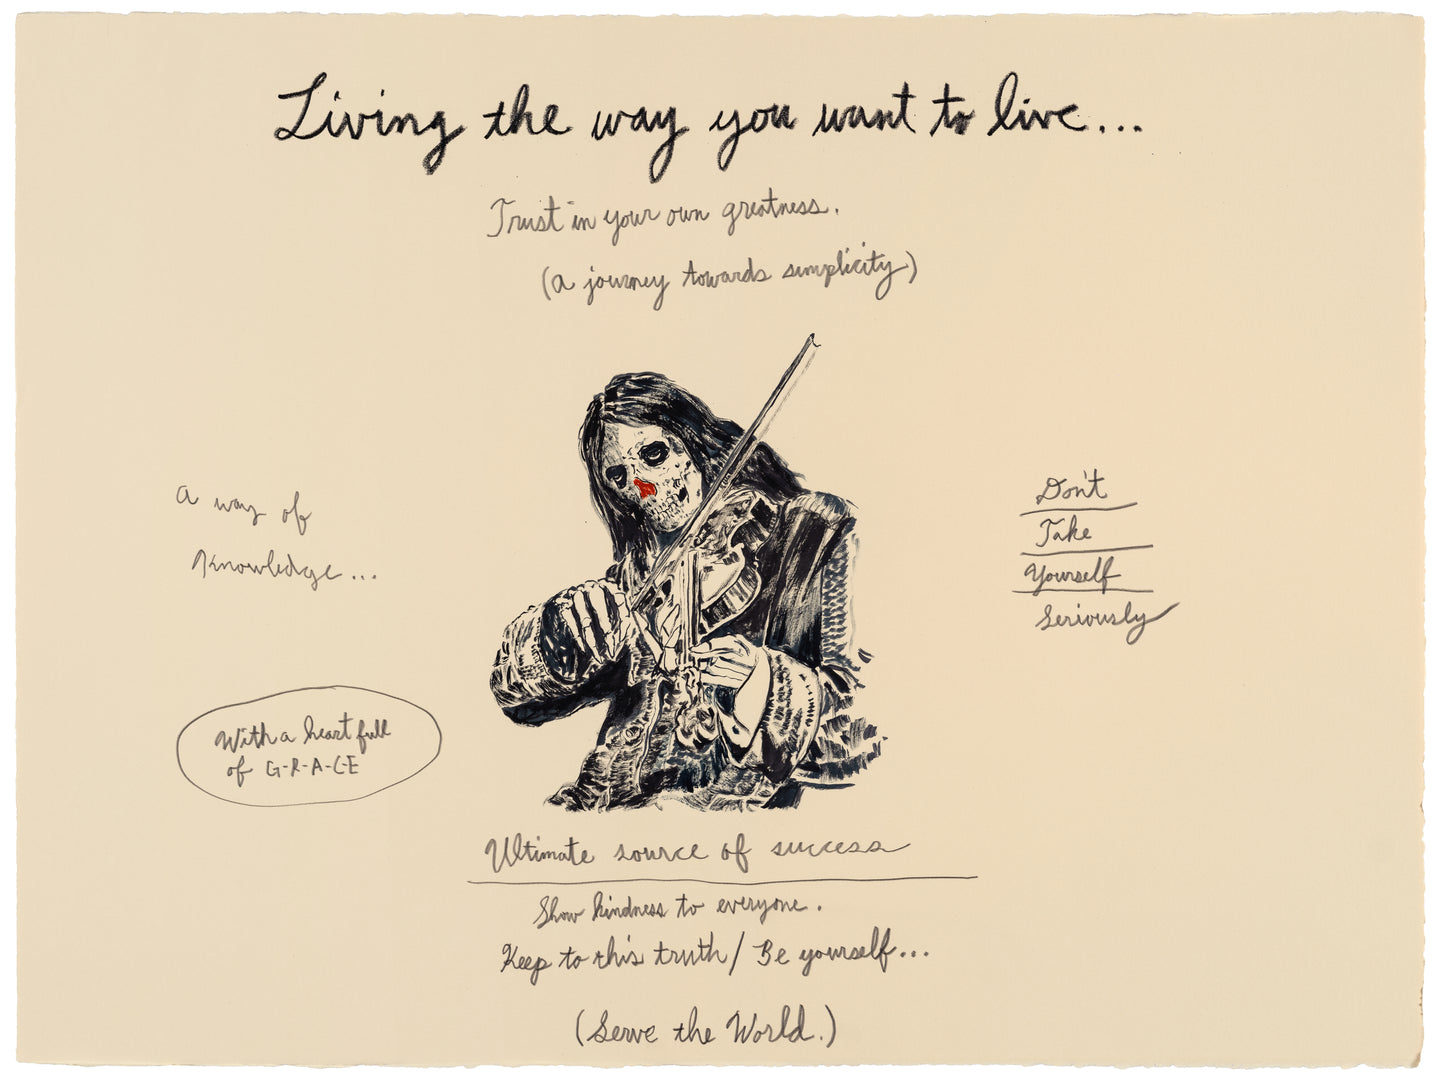 Living the way you want to live...
Trust in your own greatness.
(A journey towards simplicity)
A way of
Knowledge...
Don't
Take
Yourself
Seriously
With a heart full
of G-R-A-C-E
Ultimate source of success
Show kindness to everyone.
Keep to this truth/ Be yourself...
(Serve the World.)